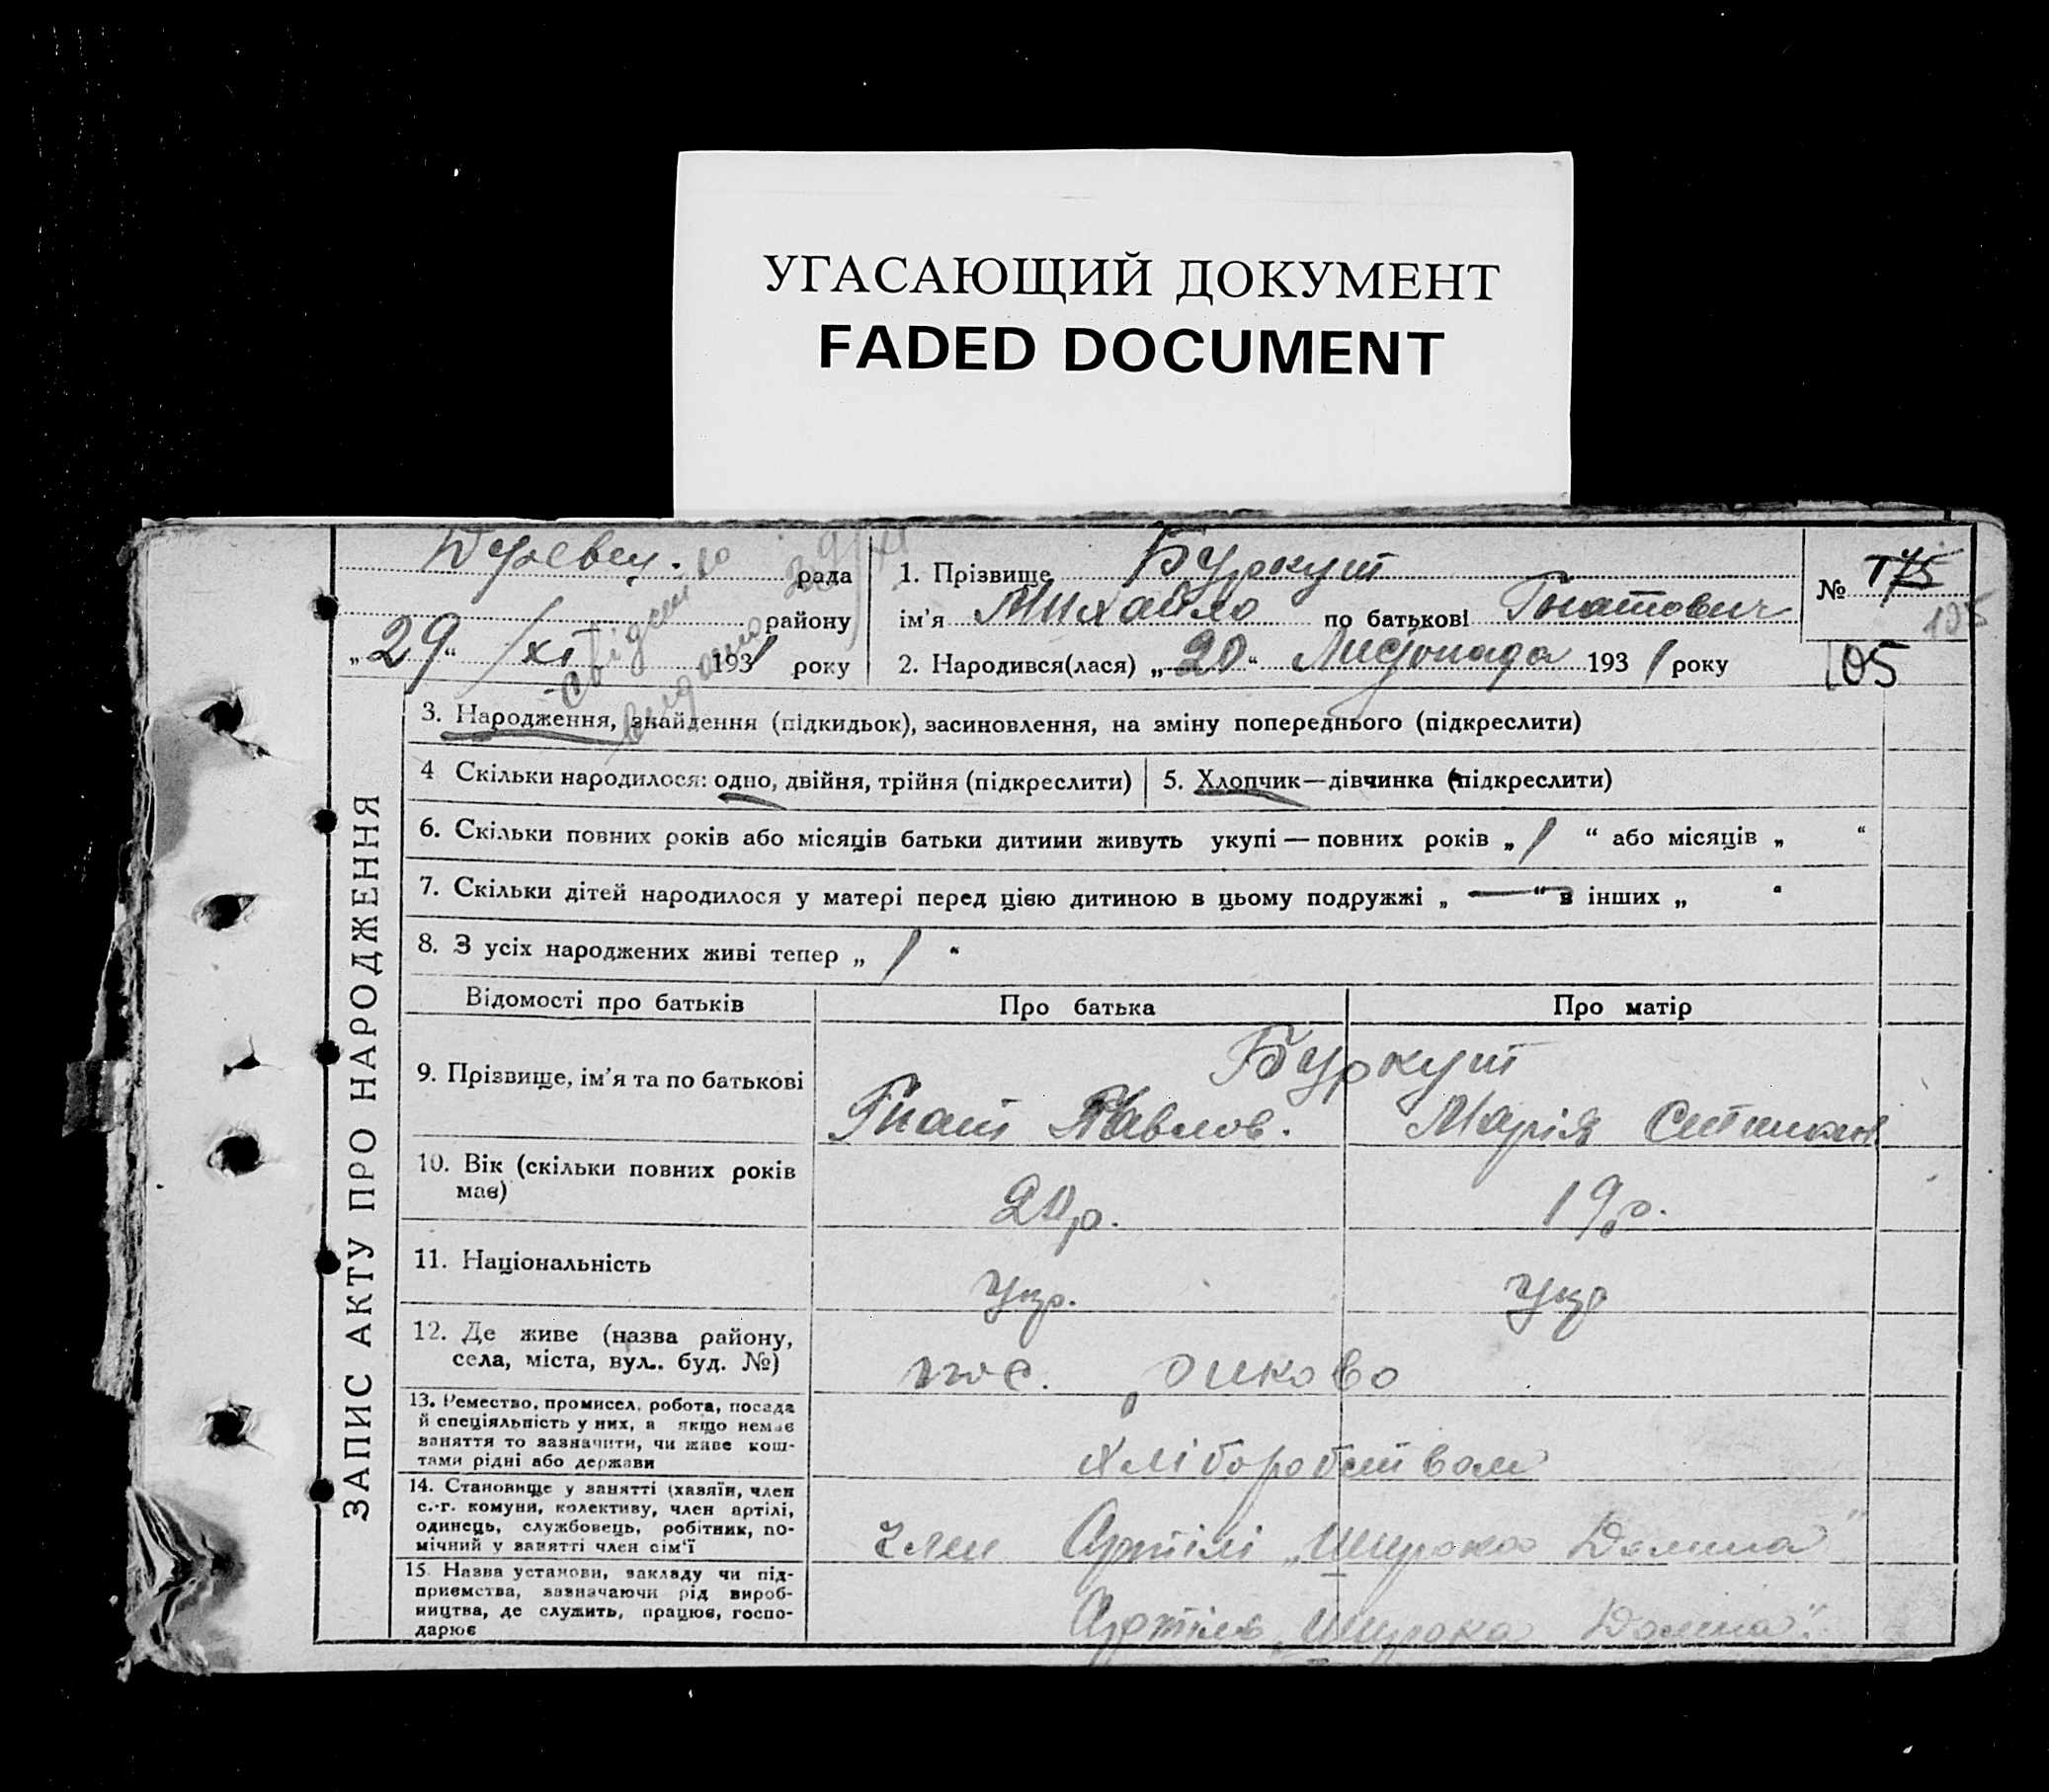 УГАСАЮЩИЙ ДОКУМЕНТ
FADED DOCUMENT
рада
району
„29“ XI 1931 року
свідоцтво
видано
1. Прізвище Буркут
ім’я Михайло по батькові Гнатович
2. Народився(лася) „20“ Листопада 1931 року
№ 175
105
105
ЗАПИС АКТУ ПРО НАРОДЖЕННЯ
3. Народження, знайдення (підкидьок), засиновлення, на зміну попереднього (підкреслити)
4 Скільки народилося: одно, двійня, трійня (підкреслити)
5. Хлопчик—дівчинка (підкреслити)
6. Скільки повних років або місяців батьки дитини живуть укупі — повних років „1“ або місяців „ “
7. Скільки дітей народилося у матері перед цією дитиною в цьому подружжі „—“ в інших „ “
8. З усіх народжених живі тепер „1“
Відомості про батьків Про батька Про матір
9. Прізвище, ім’я та по батькові
Буркут
Гнат Павлов. Марія
10. Вік (скільки повних років
має)
20 р. 19 р.
11. Національність
Укр. Укр
12. Де живе (назва району,
села, міста, вул.. буд. №)
пос. Риково
13. Ремество, промисел, робота, посада
й спеціяльність у них, а якщо немає
заняття то зазначити, чи живе кош-
тами рідні або держави
Хліборобством
14. Становище у занятті (хазяїн, член
с.-г. комуни, колективу, член артілі,
одинець, службовець, робітник, по-
мічний у занятті член сім’ї
Член Артілі „Широка Долина“
15. Назва установи, закладу чи під-
приємства, зазначаючи рід вироб-
ництва, де служить, працює, госпо-
дарює
Артіль „Широка Долина“.